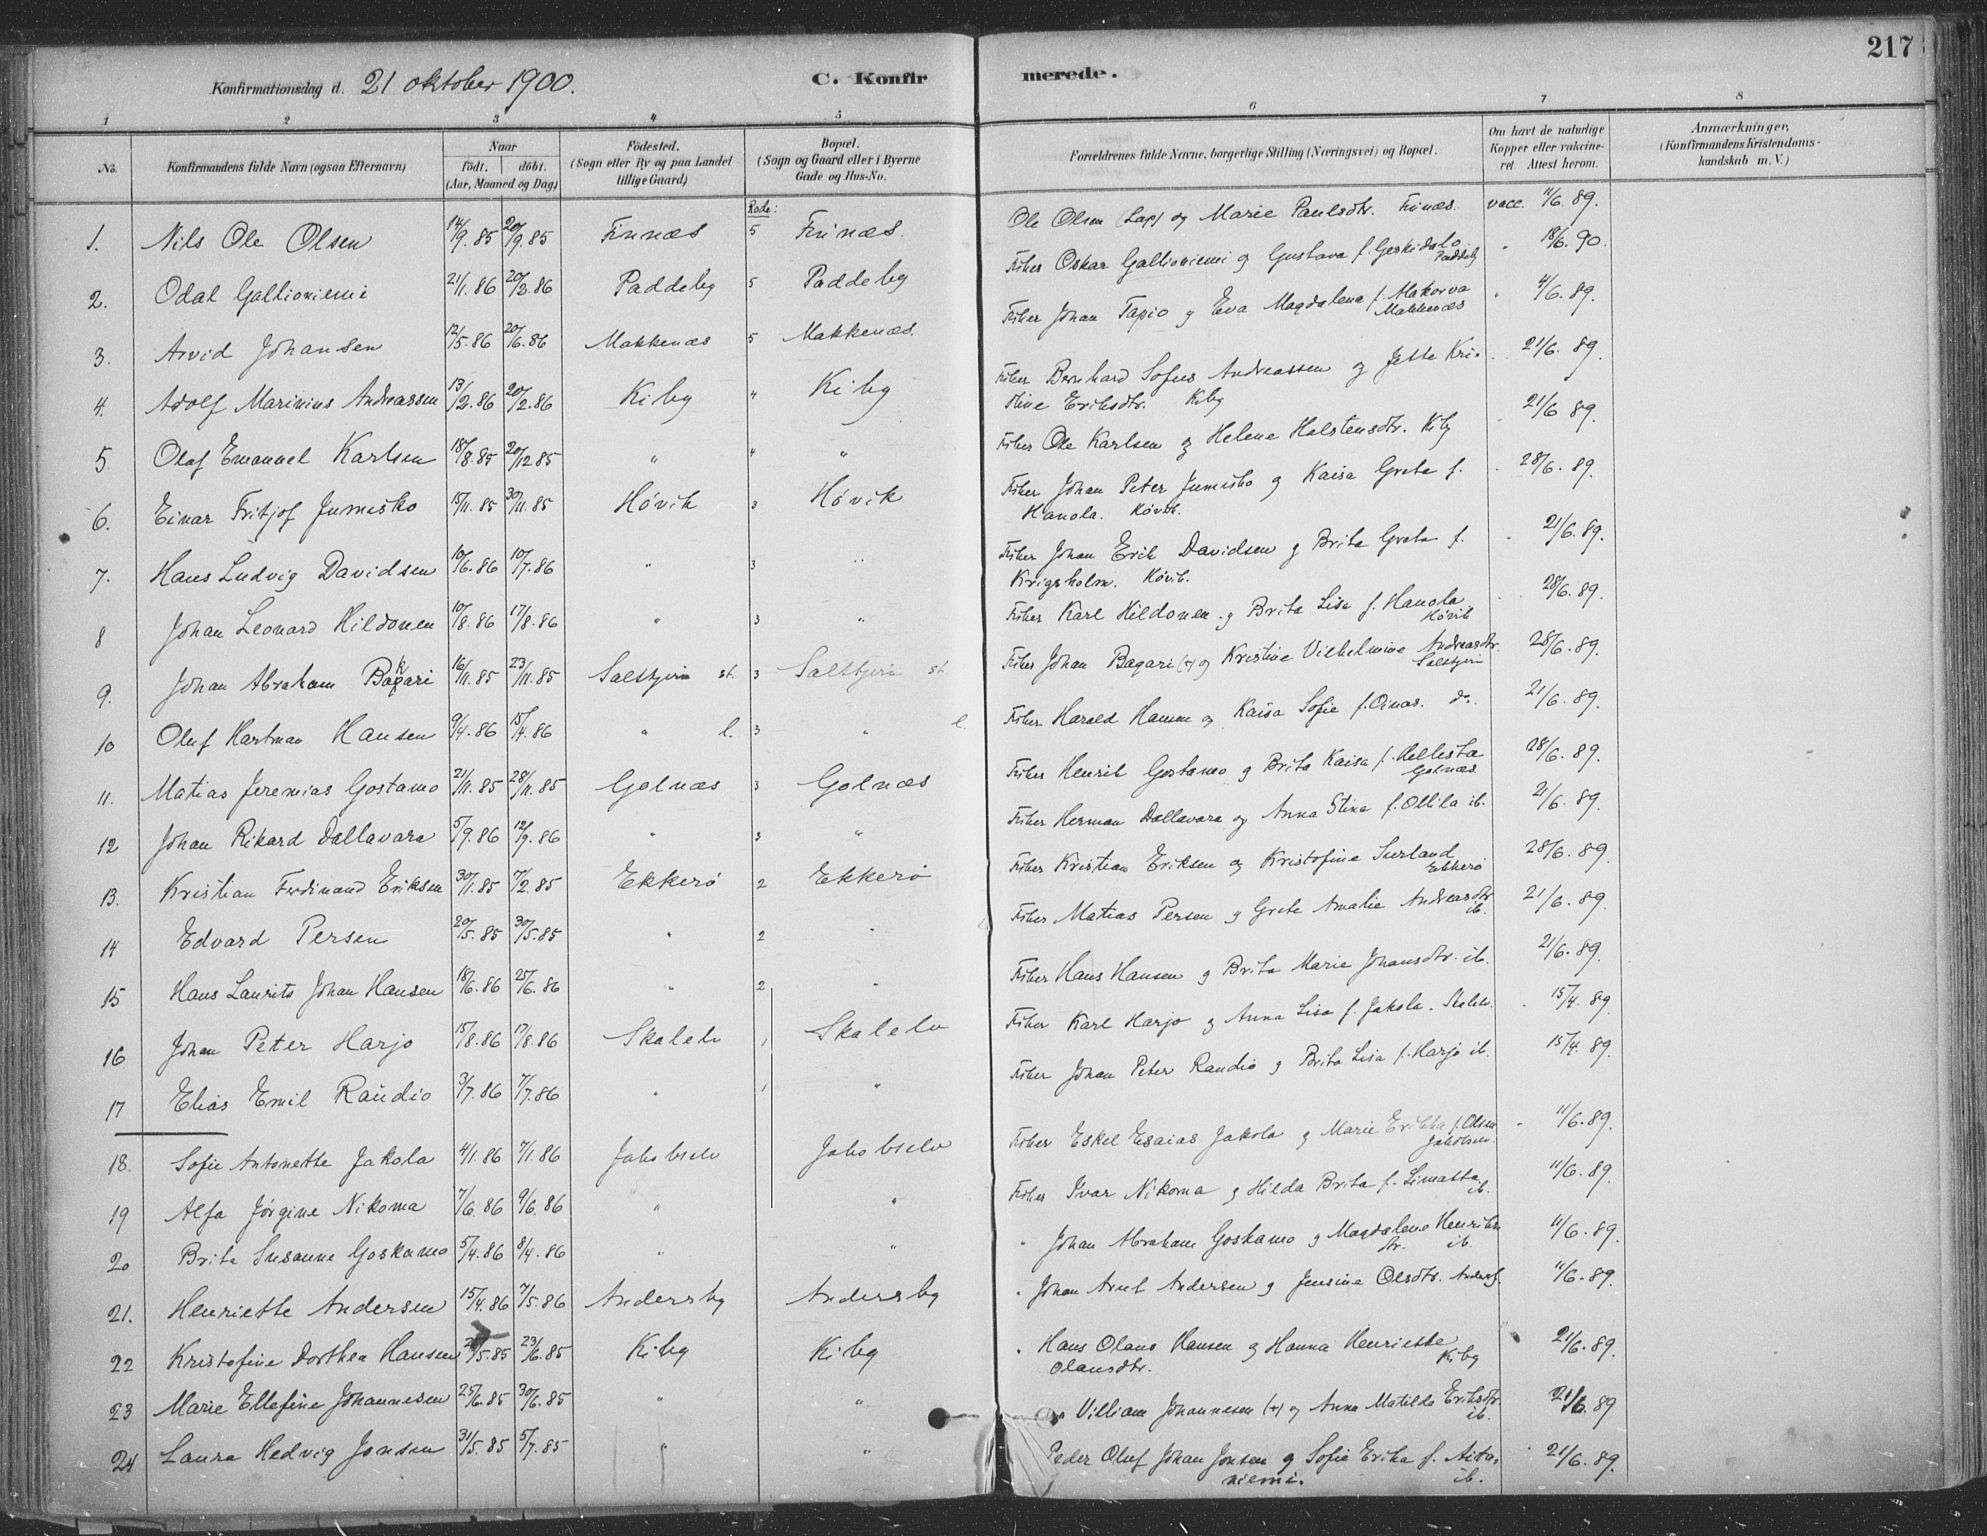 217
Konfirmationsdag d. 21 oktober 1900.
C. Konfirmerede.
1 2 3 4 5 6 7 8
No.
Konfirmandens fulde Navn (ogsaa Efternavn)
Naar
født. døbt.
(Aar, Maaned og Dag)
Fødested.
(Sogn eller By og paa Landet
tillige Gaard)
Bopæl.
(Sogn og Gaard eller i Byerne
Gade og Hus-No.
Forældrenes fulde Navne, borgerlige Stilling (Næringsvei) og Bopæl.
Om havt de naturlige
Kopper eller vakcineret
Attest herom.
Anmærkninger,
(Konfirmandens Kristendoms-
kundskab m. V.)
Rode:
1. Nils Ole Olsen 14/9. 85 20/9. 85 Finnæs 5 Finnæs. Ole Olsen (Lap) og Marie Paulsdtr. Finæs. vacc. 11/6. 89.
2. Odal Gallioniemi 21/1. 86 20/2. 86 Paddeby 5 Paddeby Fisker Oskar Gallioniemi og Gustava f. Geskidalo Paddeby " 18/6. 90.
3. Arvid Johansen 12/5. 86 20/6. 86 Makkenæs 5 Makkenæs. Fisker Johan Tapio og Eva Magdalena f. Makorva Makkenæs " 4/6. 89.
4. Adolf Marinius Andreassen 13/2. 86 20/2. 86 Kiby " Kiby Fisker Bernhard Sofus Andreassen og Jette Kri-
stine Eriksdtr. Kiby 21/6. 89.
5. Olaf Emanuel Karlsen 18/8. 85 20/12 85 " " " Fisker Ole Karlsen og Helene Halstensdtr. Kiby 21/6 89.
6. Einar Fritjof Jumisko 15/11. 85 30/11. 85 Høvik 3 Høvik Fisker Johan Peter Jumisko og Kaisa Greta f.
Hanola. Høvik. 28/6. 89.
7. Hans Ludvig Davidsen 10/6. 86 10/7. 86 " 3 " Fisker Johan Erik Davidsen og Brita Greta f.
Krigsholm. Høvik. 21/6. 89.
8 Johan Leonard Hildonen 10/8. 86 17/8. 86 " 3 " Fisker Karl Hildonen og Brita Lisa f. Hanola Høvik 28/6. 89.
9. Johan Abraham Bagari 16/11. 85 23/11. 85 Saltstjern st. 3 Saltstjern st. Fisker Johan Bagari (+) og Kristine Vilhelmine Andreasdtr. Saltstjern 28/6. 89.
10 Oluf Hartman Hansen 9/4. 86 15/4. 86 " l. 3 " l. Fisker Harald Hansen og Kaisa Sofie f. Oinas. do. 21/6. 89.
11. Matias Jeremias Gostamo 21/11. 85 28/11. 85 Golnæs 3 Golnæs Fisker Henrik Gostamo og Brita Kaisa f. Hellesta Golnæs. 28/6. 89.
12 Johan Rikard Dallavara 5/9. 86 12/9. 86 " 3 " Fisker Herman Dallavara og Anna Stina f. Ollila ib. 21/6. 89.
13. Kristian Ferdinand Eriksen 30/1. 85 7/2. 85 Ekkerø 2 Ekkerø Fisker Kristian Eriksen og Kristofine Surland Ekkerø 28/6. 89.
14 Edvard Persen 20/5. 85 30/5. 85 " 2 " Fisker Matias Persen og Grete Amalie Andreasdtr ib. 21/6. 89.
15 Hans Laurits Johan Hansen 18/6. 86 25/6. 86 " 2 " Fisker Hans Hansen og Brita Marie Johansdtr. ib. 21/6. 89.
16 Johan Peter Harjo 15/8. 86 17/8. 86 Skalelv 1 Skalelv Fisker Karl Harjo og Anna Lisa f. Jakola. Skalelv. 15/4. 89.
17 Elias Emil Raudio 3/7. 86 7/7. 86 " 1 " Fisker Johan Peter Raudio og Brita Lisa f. Harjo ib. 15/4. 89.
18. Sofie Antonette Jakola 4/1. 86 7/1. 86 Jakobselv Jakobselv Fisker Eskel Esaias Jakola og Marie Erikka f. Olsen Jakobselv. " 11/6. 89.
19 Alfa Jørgine Nikoma 7/6. 86 9/6. 86 " " Fisker Ivar Nikoma og Hilda Brita f. Limatta ib. 11/6. 89.
20 Brita Susanne Goskamo 5/4. 86 8/4. 86 " " " Johan Abraham Goskamo og Magdalene Henriks-
dtr. ib. 11/6. 89.
21. Henriette Andersen 15/4. 86 7/5. 86 Andersby Andersby " Johan Arnt Andersen og Jensine Olsdtr. 11/6. 89.
22 Kristofine Dorthea Hansen 5. 85 23/6. 85 Kiby Kiby " Hans Olaus Hansen og Hanna Henriette
Olausdtr. Kiby 21/6. 89.
23 Marie Ellefine Johannesen 25/6. 85 30/6. 85 " " Villiam Johannesen (+) og Anna Matilda Eriksdtr. ib. 21/6. 89
24 Laura Hedvig Jonsen 31/5. 85 5/7. 85 " " Peder Oluf Johan Jonsen og Sofie Erika f. Aita-
niemi. ib. 21/6. 89.